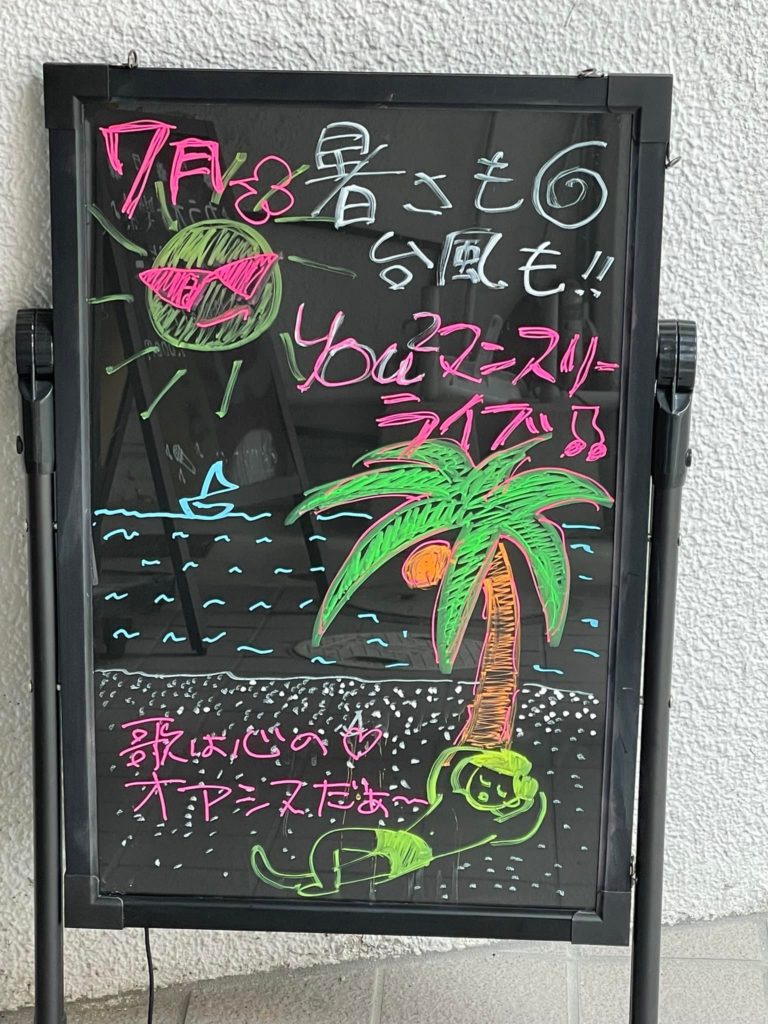 7月 暑さも
台風も!!
You²マンスリー
ライブ♫
歌は心の♡
オアシスだぁ〜